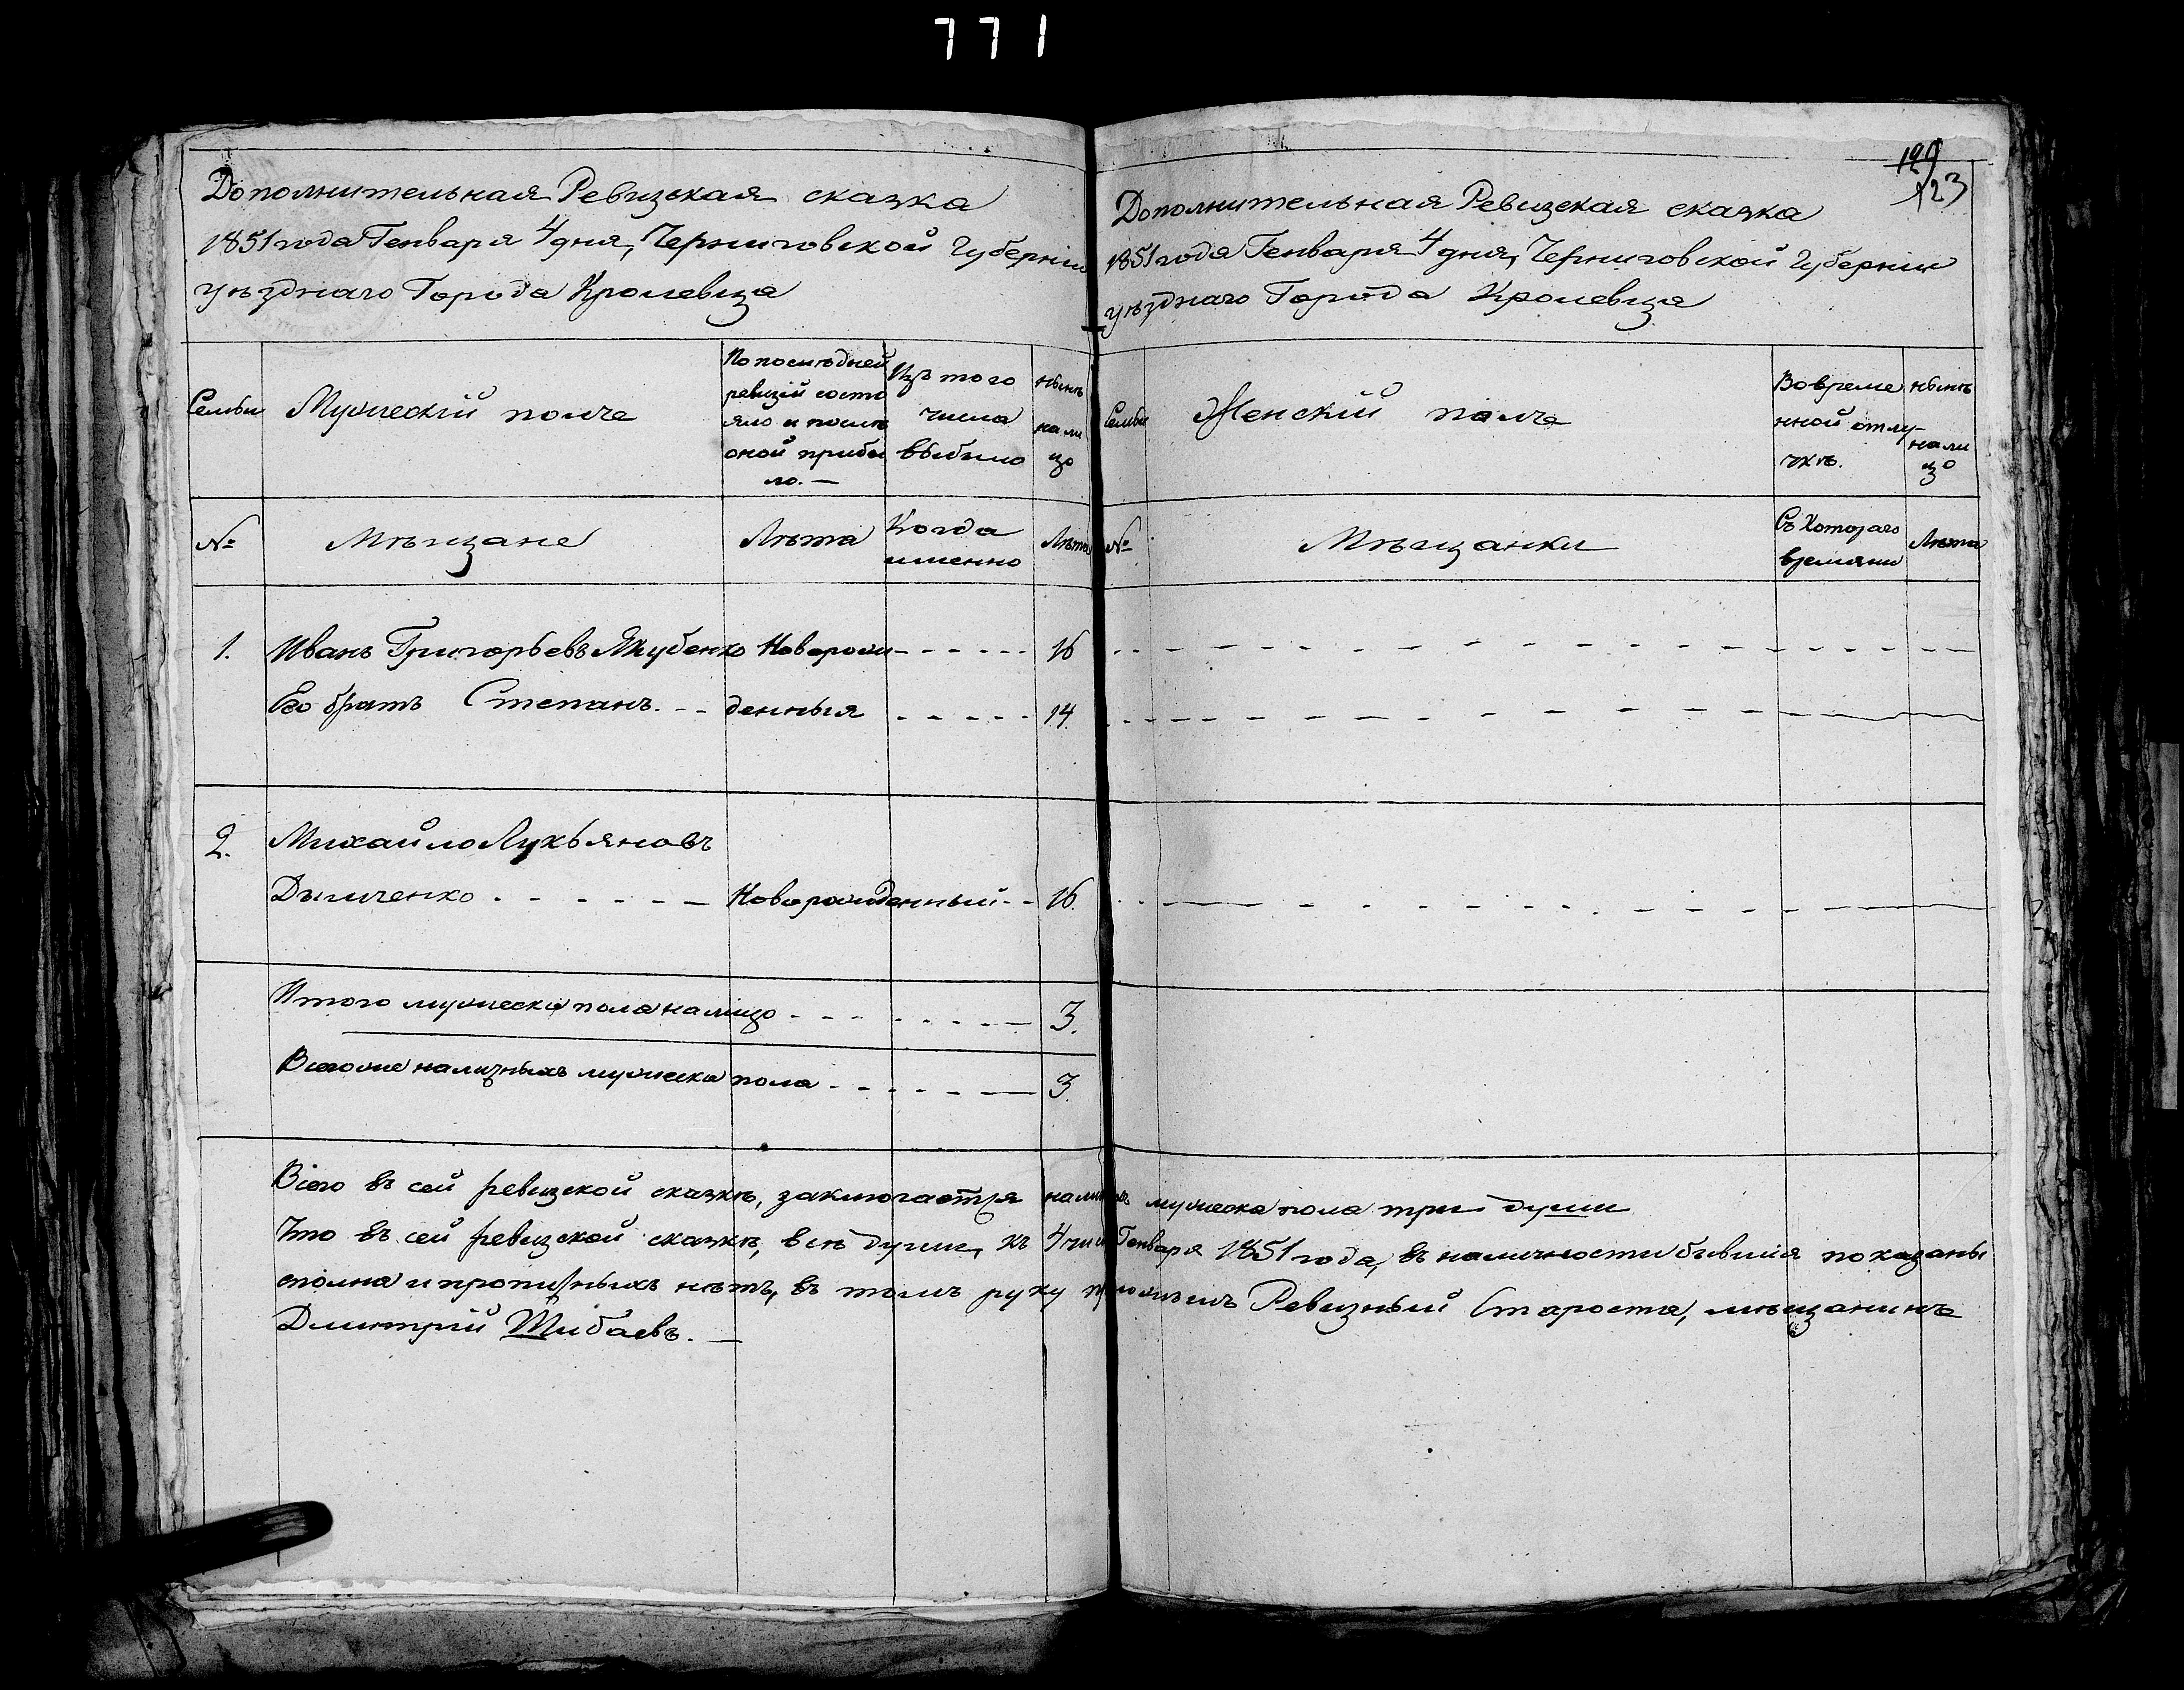 771
129
123
Дополнительная Ревизькая сказка
1851 года Генваря 4 дня, Черниговской Губерніи
уѣзднаго Города Кролевца
Семьи
Мужескій полъ
По последней
ревизіи состо
яло и послѣ
оной прибы
ло. —
Изъ того
числа
выбыло
нынѣ
нали
цо
№
Мѣщане
Лѣта
Когда
именно
Лѣта
1. Иванъ Григорьевъ Якубенко Новорож - - - - - 16
Его братъ Степанъ. - - денныя - - - - - 14.
2. Михайло Лукьяновъ
Дымченко - - - - - - Новорожденный - - 16.
Итого мужеска пола налицо - - - - - - - 3.
Всегоже наличныхъ мужеска пола - - - - - - 3.
Дополнительная Ревизская сказка
1851 года Генваря 4 дня, Черниговской Губерніи
уѣзднаго Города Кролевца
Семьи
Женскій полъ
Во време
нной отлу-
чкѣ.
нынѣ
нали
цо
№
Мѣщанки
Съ Котораго
времяни
Лѣта
Всего въ сей ревизской сказкѣ, заключается мужеска пола три души
Что въ сей ревизской сказкѣ, всѣ души, къ 4 Генваря 1851 года, въ наличности бывшія показаны
сполна и прописныхъ нѣтъ, въ томъ руку приложилъ Ревизный Староста, мѣщанинъ
Дмитрій Шибаевъ. —